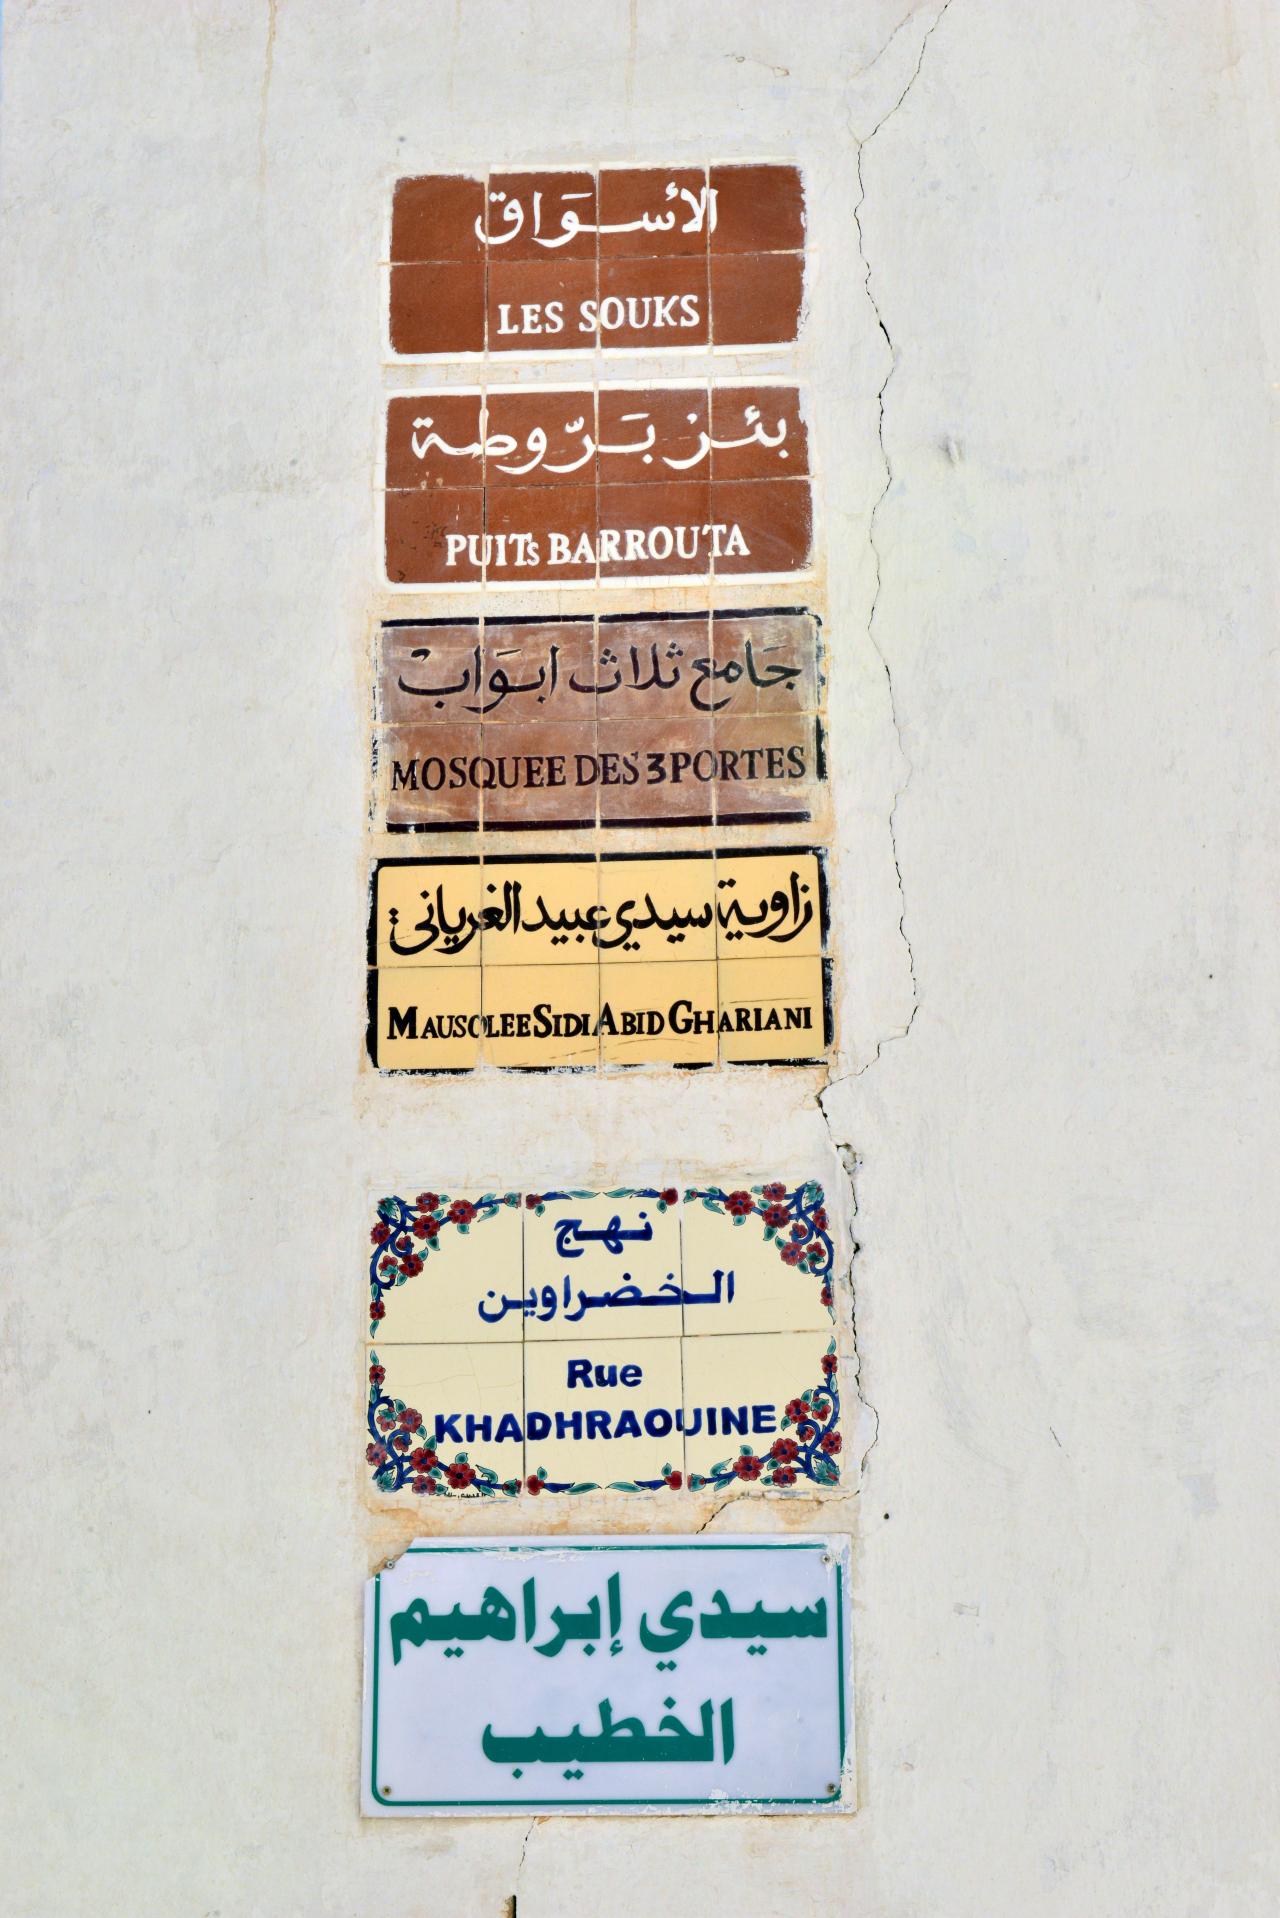 الأسْوَاق
LES SOUKS
بئْر بَرّوطة
PUITs BARROUTA
جَامع ثلاث ابوَابْ
MOSQUEE DES 3 PORTES
زاوية سيدي عبيد الغرياني
MAUSOLEE SIDI ABID GHARIANI
نهج
الخضراوين
Rue
KHADHRAOUINE
سيدي إبراهيم
الخطيب